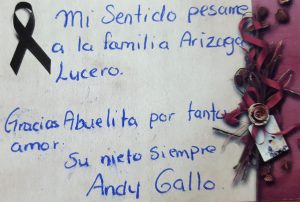 Mi Sentido pesame
a la familia Arizaga
Lucero.
Gracias Abuelita por tanto
amor.
Su nieto siempre
Andy Gallo.